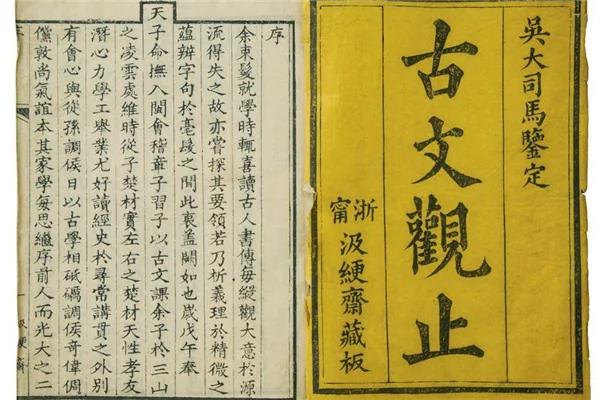 吳大司馬鑒定
古文觀止
浙甯
汲綆齋藏板
序
余束髮就學時輒喜讀古人書傳每縱觀大意於源
流得失之故亦嘗探其要領若乃析義理於精微之
蘊辨字句於毫髮之間此衷蓋闕如也歲戊午奉
天子命撫八閩會稽章子習子以古文課余子於三山
之凌雲處維時從子楚材實左右之楚材天性孝友
潛心力學工舉業尤好讀經史於尋常講貫之外別
有會心與從孫調侯日以古學相砥礪調侯奇偉倜
儻敦尚氣誼本其家學每思繼序前人而光大之二
序
一